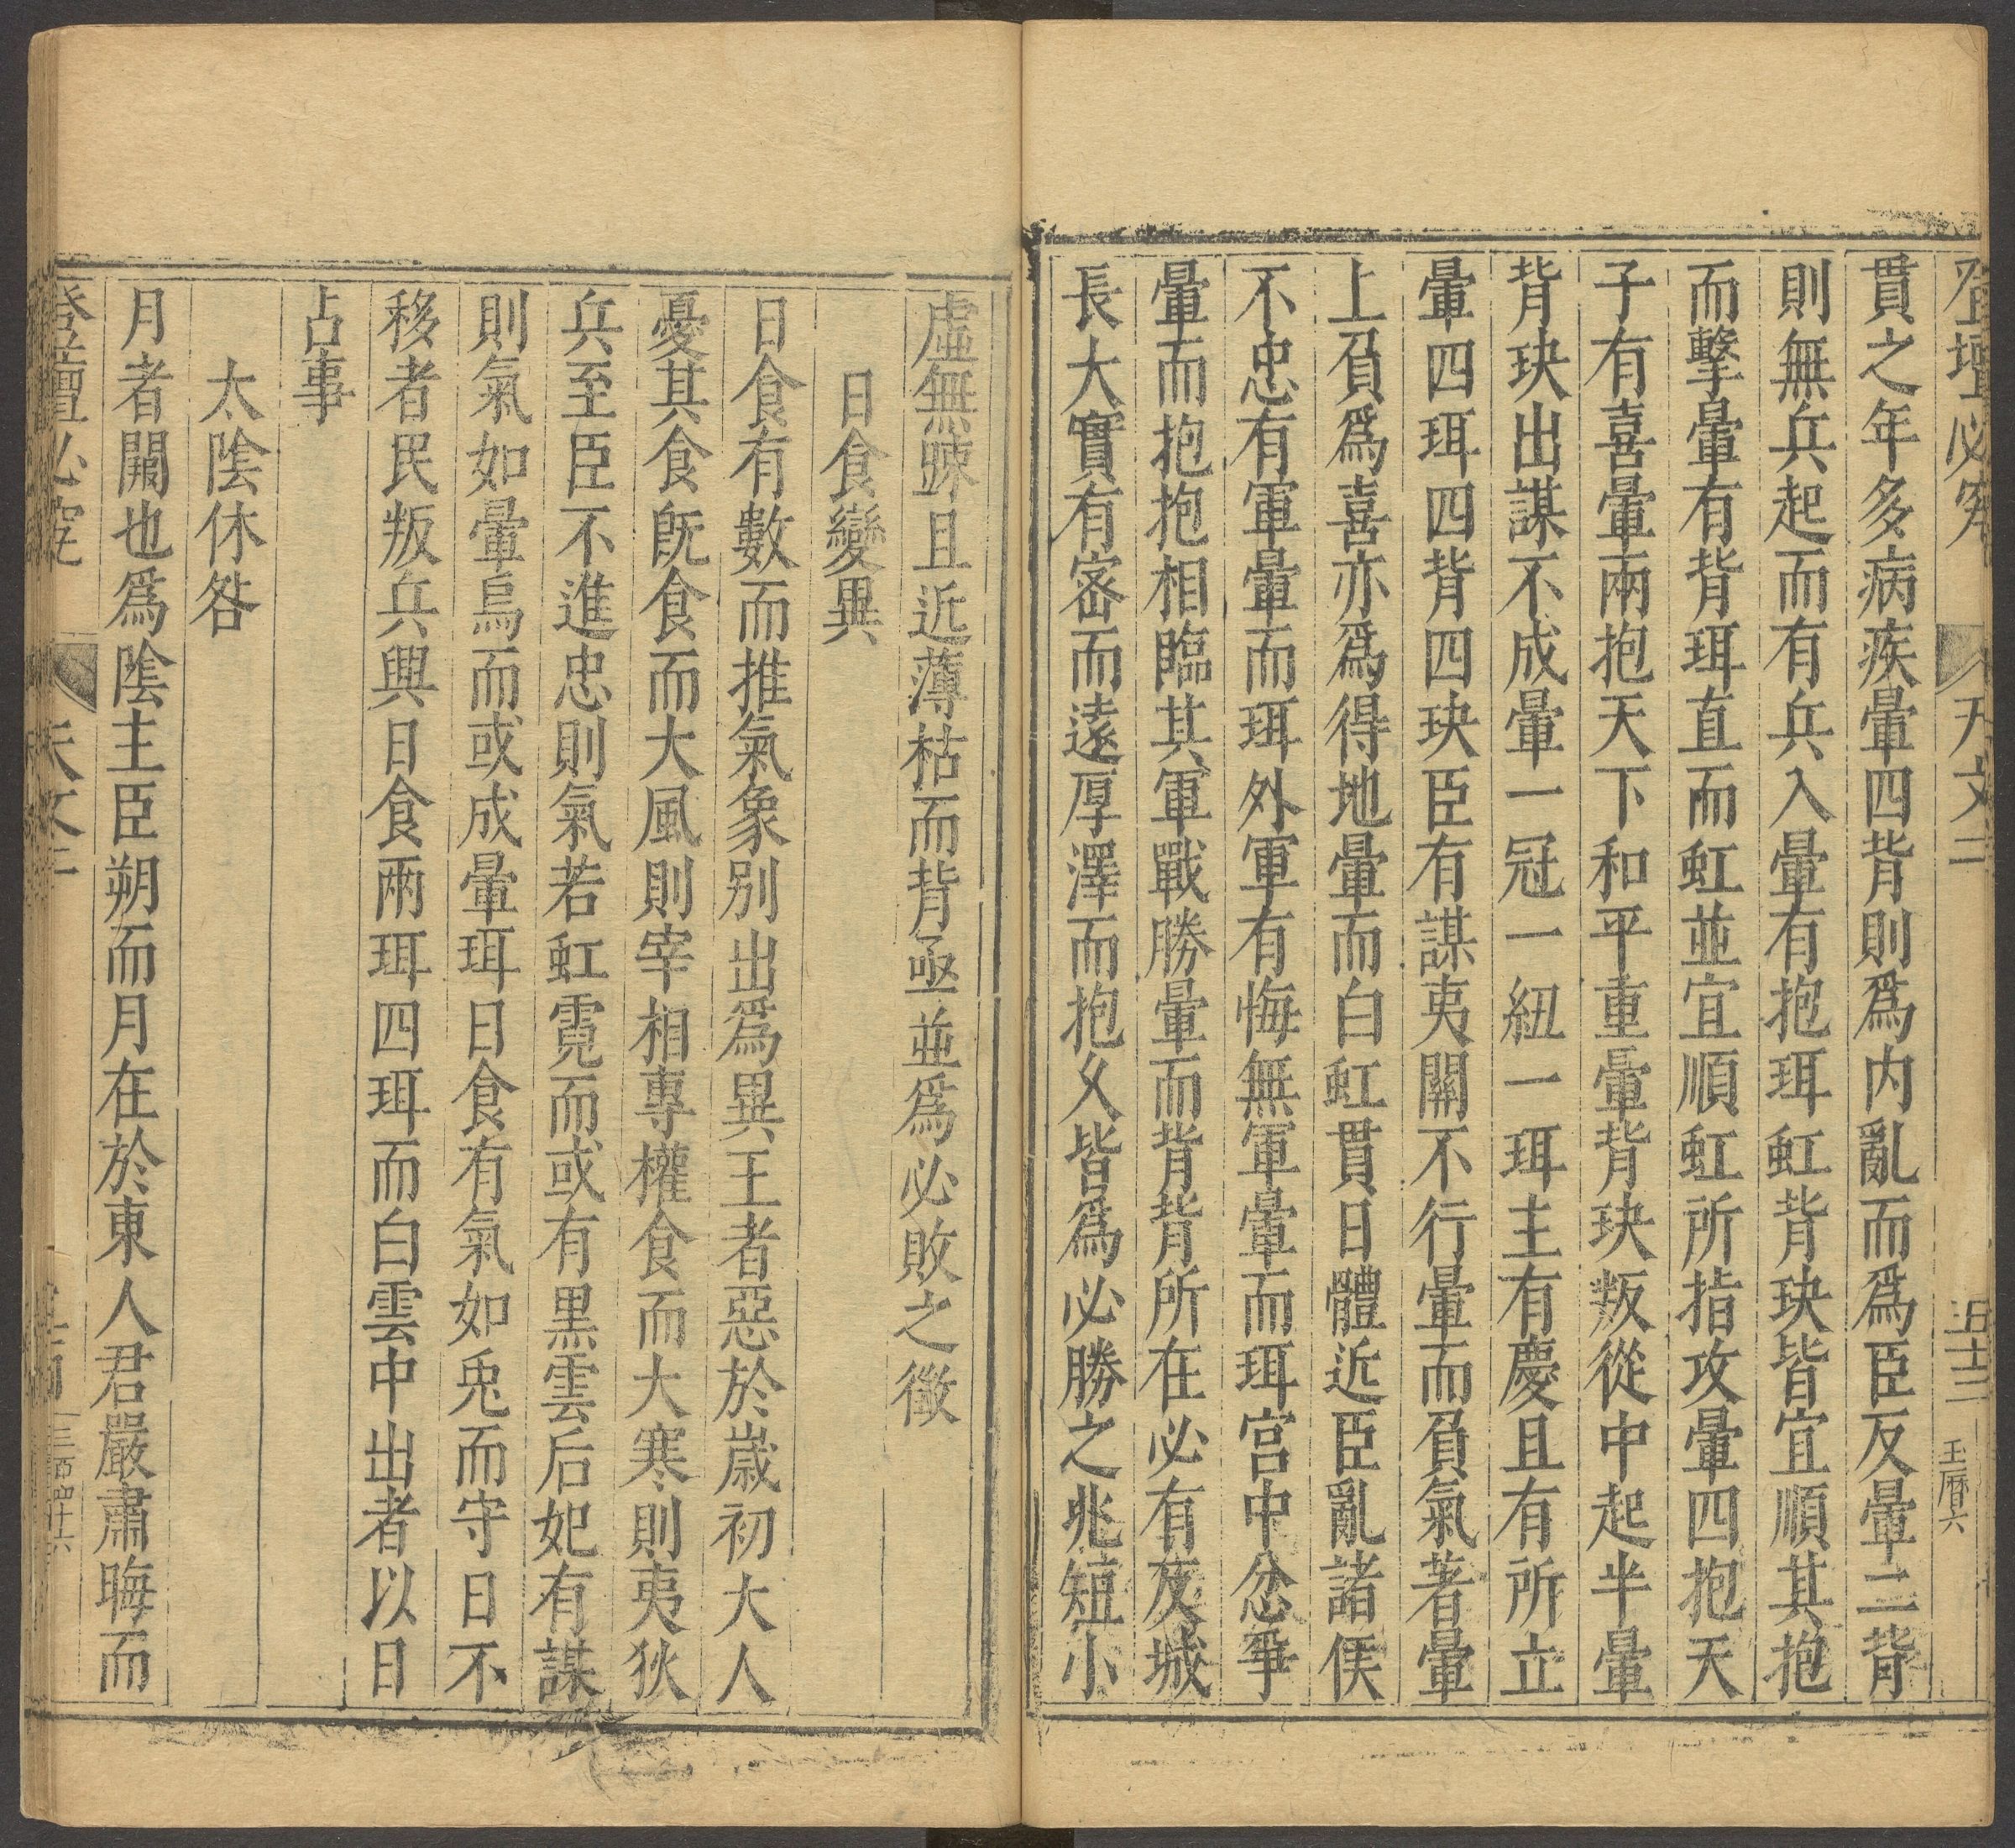 登壇必究 天文二 五十三 王曆六
貫之年多病疾暈四背則爲内亂而爲臣反暈二背
則無兵起而有兵入暈有抱珥虹背玦皆宜順其抱
而擊暈有背珥直而虹並宜順虹所指攻暈四抱天
子有喜暈兩抱天下和平重暈背玦叛從中起半暈
背玦出謀不成暈一冠一紐一珥主有慶且有所立
暈四珥四背四玦臣有謀夷關不行暈而負氣著暈
上負爲喜亦爲得地暈而白虹貫日體近臣亂諸侯
不忠有軍暈而珥外軍有悔無軍暈而珥宫中忿爭
暈而抱抱相臨其軍戰勝暈而背背所在必有反城
長大實有宻而遠厚澤而抱乆皆爲必勝之兆短小
虛無踈且近薄枯而背亟並爲必敗之徵
日食變異
日食有數而推氣象别出爲異王者惡於歲初大人
憂其食旣食而大風則宰相專權食而大寒則夷狄
兵至臣不進忠則氣若虹霓而或有黒雲后妃有謀
則氣如暈烏而或成暈珥日食有氣如兎而守日不
移者民叛兵興日食兩珥四珥而白雲中出者以日
占事
太陰休咎
月者闕也爲陰主臣朔而月在於東人君嚴肅晦而
登壇必究 天文二 三百四十六